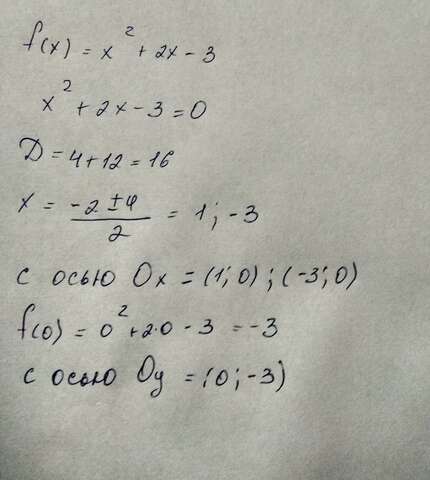 f(x) = x² + 2x - 3
x² + 2x - 3 = 0
D = 4 + 12 = 16
x = (-2 ± 4)/2 = 1; -3
с осью Ox = (1; 0); (-3; 0)
f(0) = 0² + 2·0 - 3 = -3
с осью Oy = (0; -3)